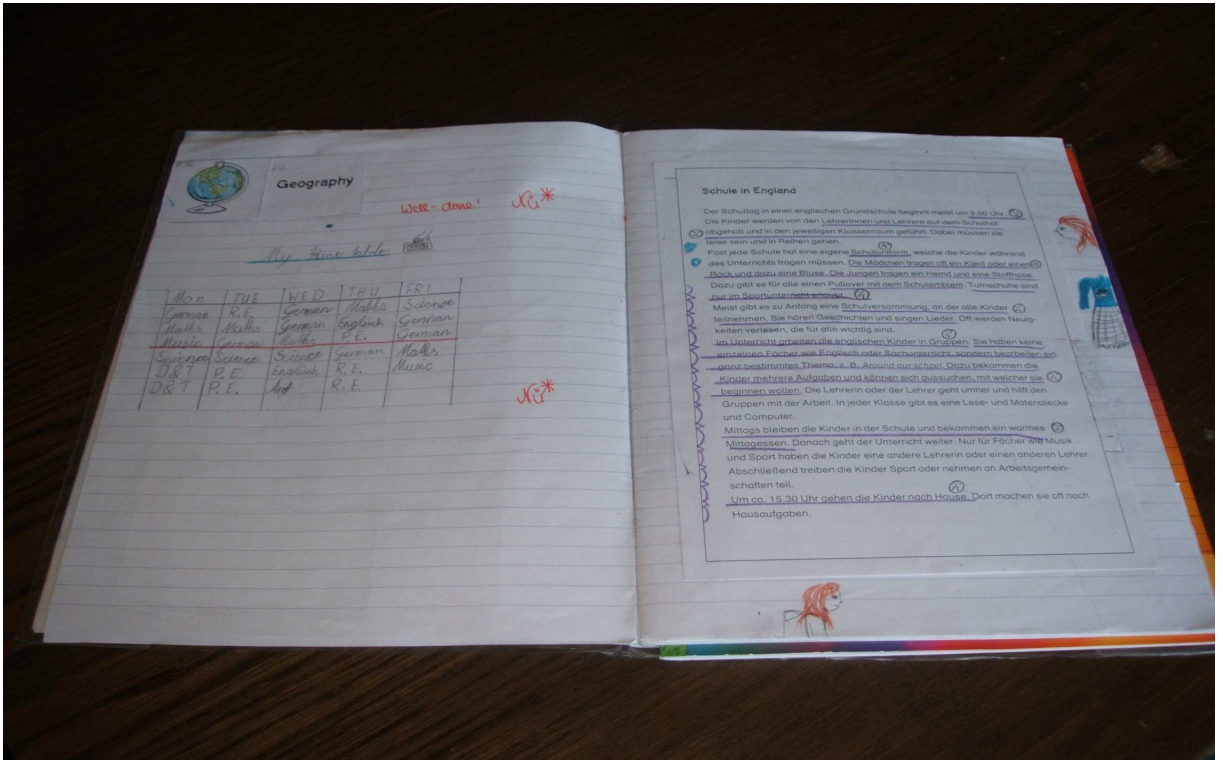 Geography
Well-done!
My time table
Mon TUE THU FRI
German Maths Science
Englisch German
Music German Maths P.E. German
Science Science German Maths
P.E. R.E. Music
P.E. R.E.
Schule in England
Der Schultag in einer englischen Grundschule beginnt meist um 9.00 Uhr.
Die Kinder werden von den Lehrerinnen und Lehrern auf dem Schulhof
abgeholt und in den jeweiligen Klassenraum geführt. Dabei müssen sie
leise sein und in Reihen gehen.
Fast jede Schule hat eine eigene Schuluniform, welche die Kinder während
des Unterrichts tragen müssen. Die Mädchen tragen oft ein Kleid oder einen
Rock und dazu eine Bluse. Die Jungen tragen ein Hemd und eine Stoffhose.
Dazu gibt es für alle einen Pullover mit dem Schulemblem. Turnschuhe sind
nur im Sportunterricht erlaubt.
Meist gibt es zu Anfang eine Schulversammlung, an der alle Kinder
teilnehmen. Sie hören Geschichten und singen Lieder. Oft werden Neuig-
keiten verlesen, die für alle wichtig sind.
Im Unterricht arbeiten die englischen Kinder in Gruppen. Sie haben keine
einzelnen Fächer wie Englisch oder Sachunterricht, sondern bearbeiten ein
ganz bestimmtes Thema, z. B. Around our school. Dazu bekommen die
Kinder mehrere Aufgaben und können sich aussuchen, mit welcher sie
beginnen wollen. Die Lehrerin oder der Lehrer geht umher und hilft den
Gruppen mit der Arbeit. In jeder Klasse gibt es eine Lese- und Materialecke
und Computer.
Mittags bleiben die Kinder in der Schule und bekommen ein warmes
Mittagessen. Danach geht der Unterricht weiter. Nur für Fächer wie Musik
und Sport haben die Kinder eine andere Lehrerin oder einen anderen Lehrer.
Abschließend treiben die Kinder Sport oder nehmen an Arbeitsgemein-
schaften teil.
Um ca. 15.30 Uhr gehen die Kinder nach Hause. Dort machen sie oft noch
Hausaufgaben.